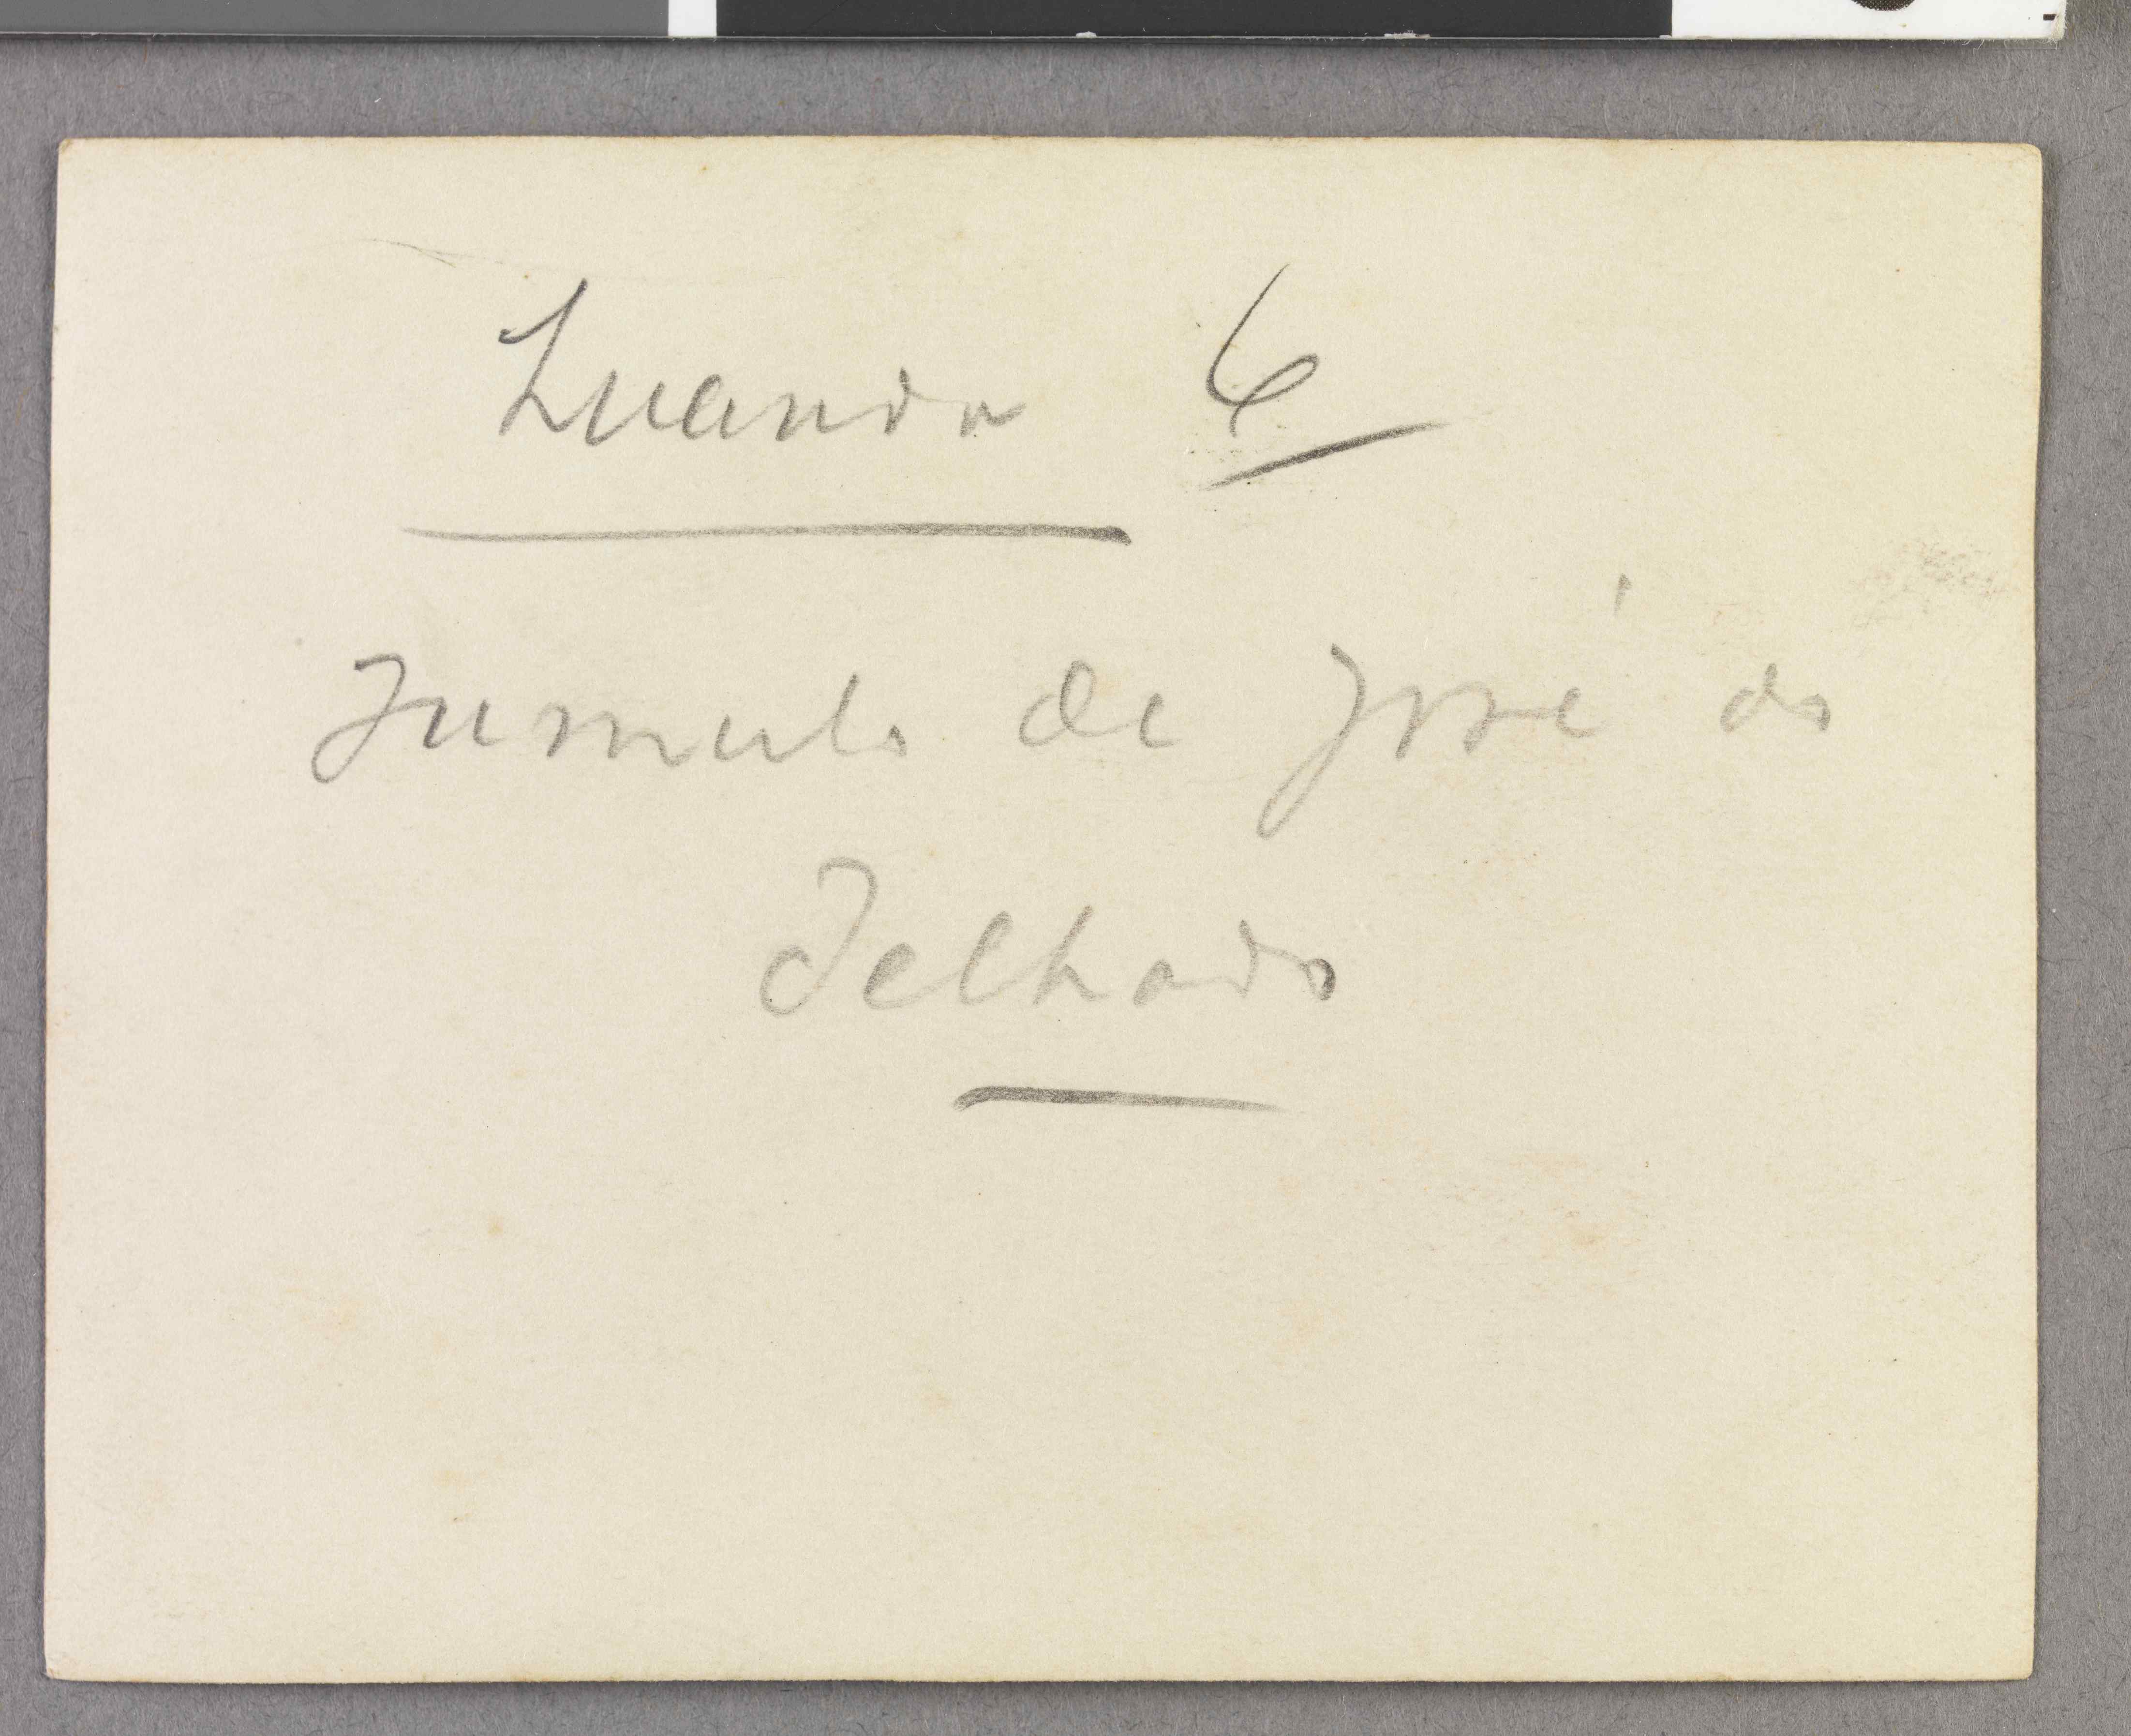 Luanda 6
Tumulo de José do
Telhado